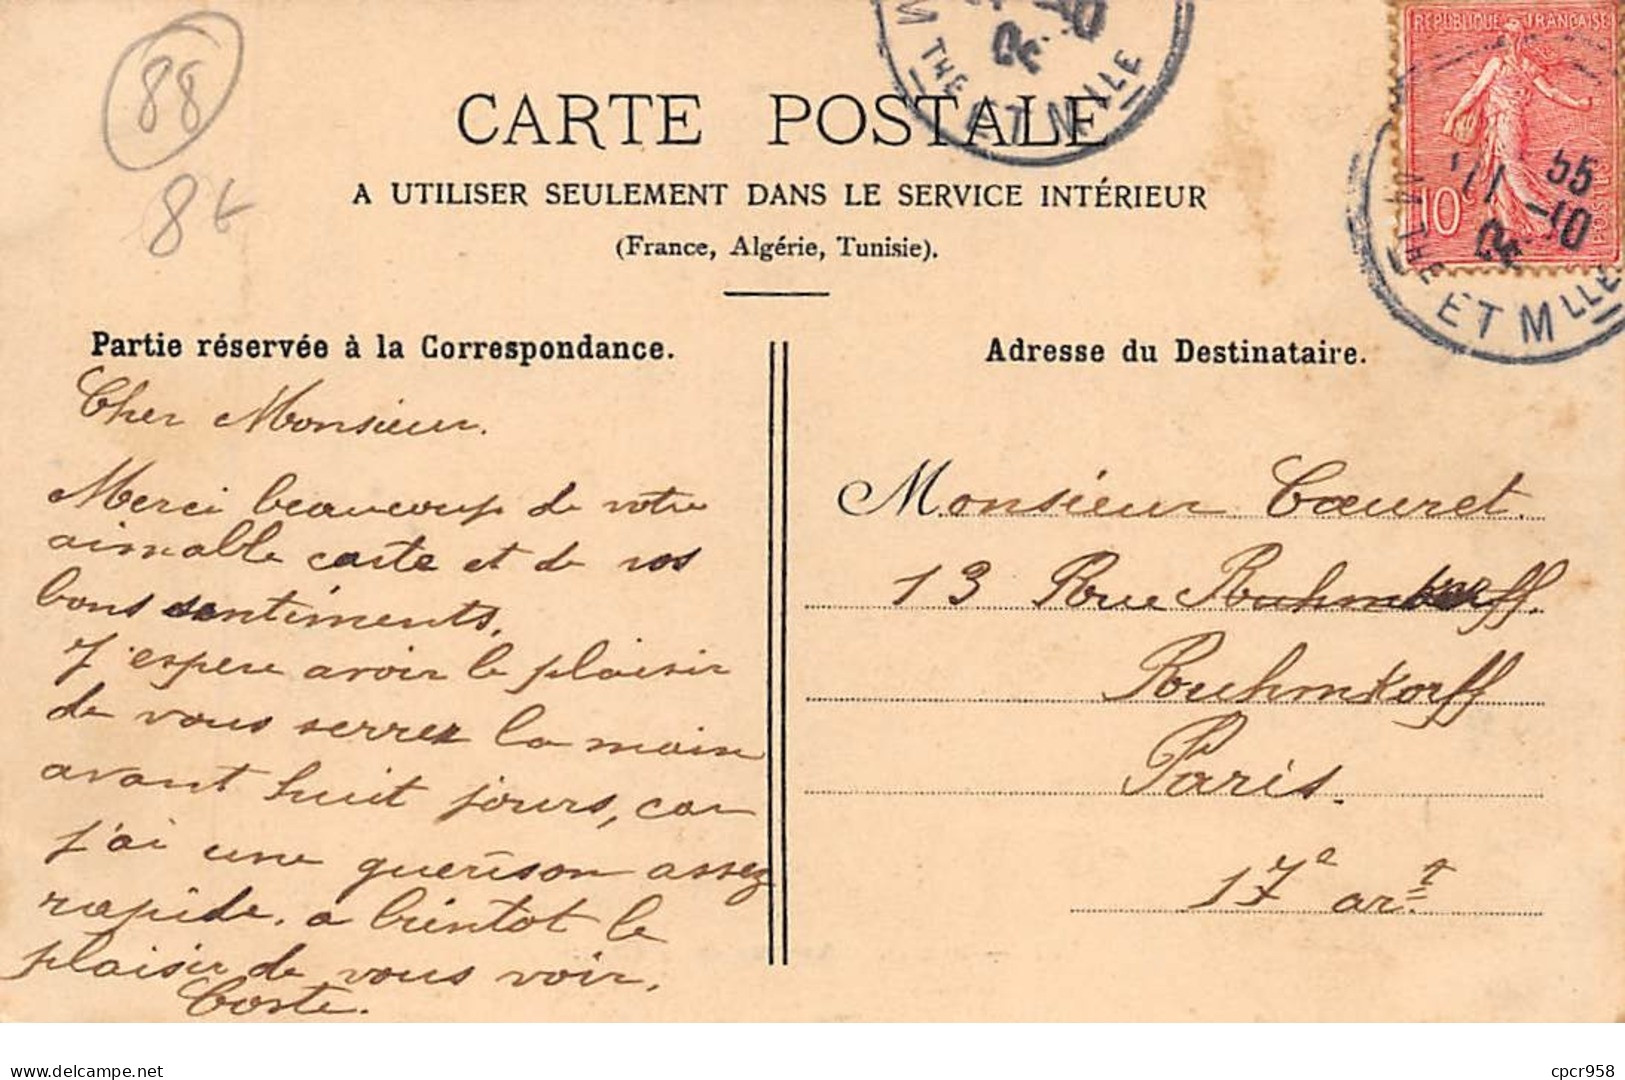 88
8t
CARTE POSTALE
A UTILISER SEULEMENT DANS LE SERVICE INTÉRIEUR
(France, Algérie, Tunisie).
REPUBLIQUE FRANÇAISE
10
POSTES
11 55
-10
Mthe ET Mlle
Mthe ET Mlle
Partie réservée à la Correspondance.
Cher Monsieur.
Merci beaucoup de votre
aimable carte et de vos
bons sentiments.
J'espere avoir le plaisir
de vous serrer la main
avant huit jours, car
j'ai une guerison assez
rapide. a bientot le
plaisir de vous voir.
Coste.
Adresse du Destinataire.
Monsieur Cœuret.
13 Rue Rouhmkorff.
Rouhmkorff
Paris.
17e art.
cpcr958